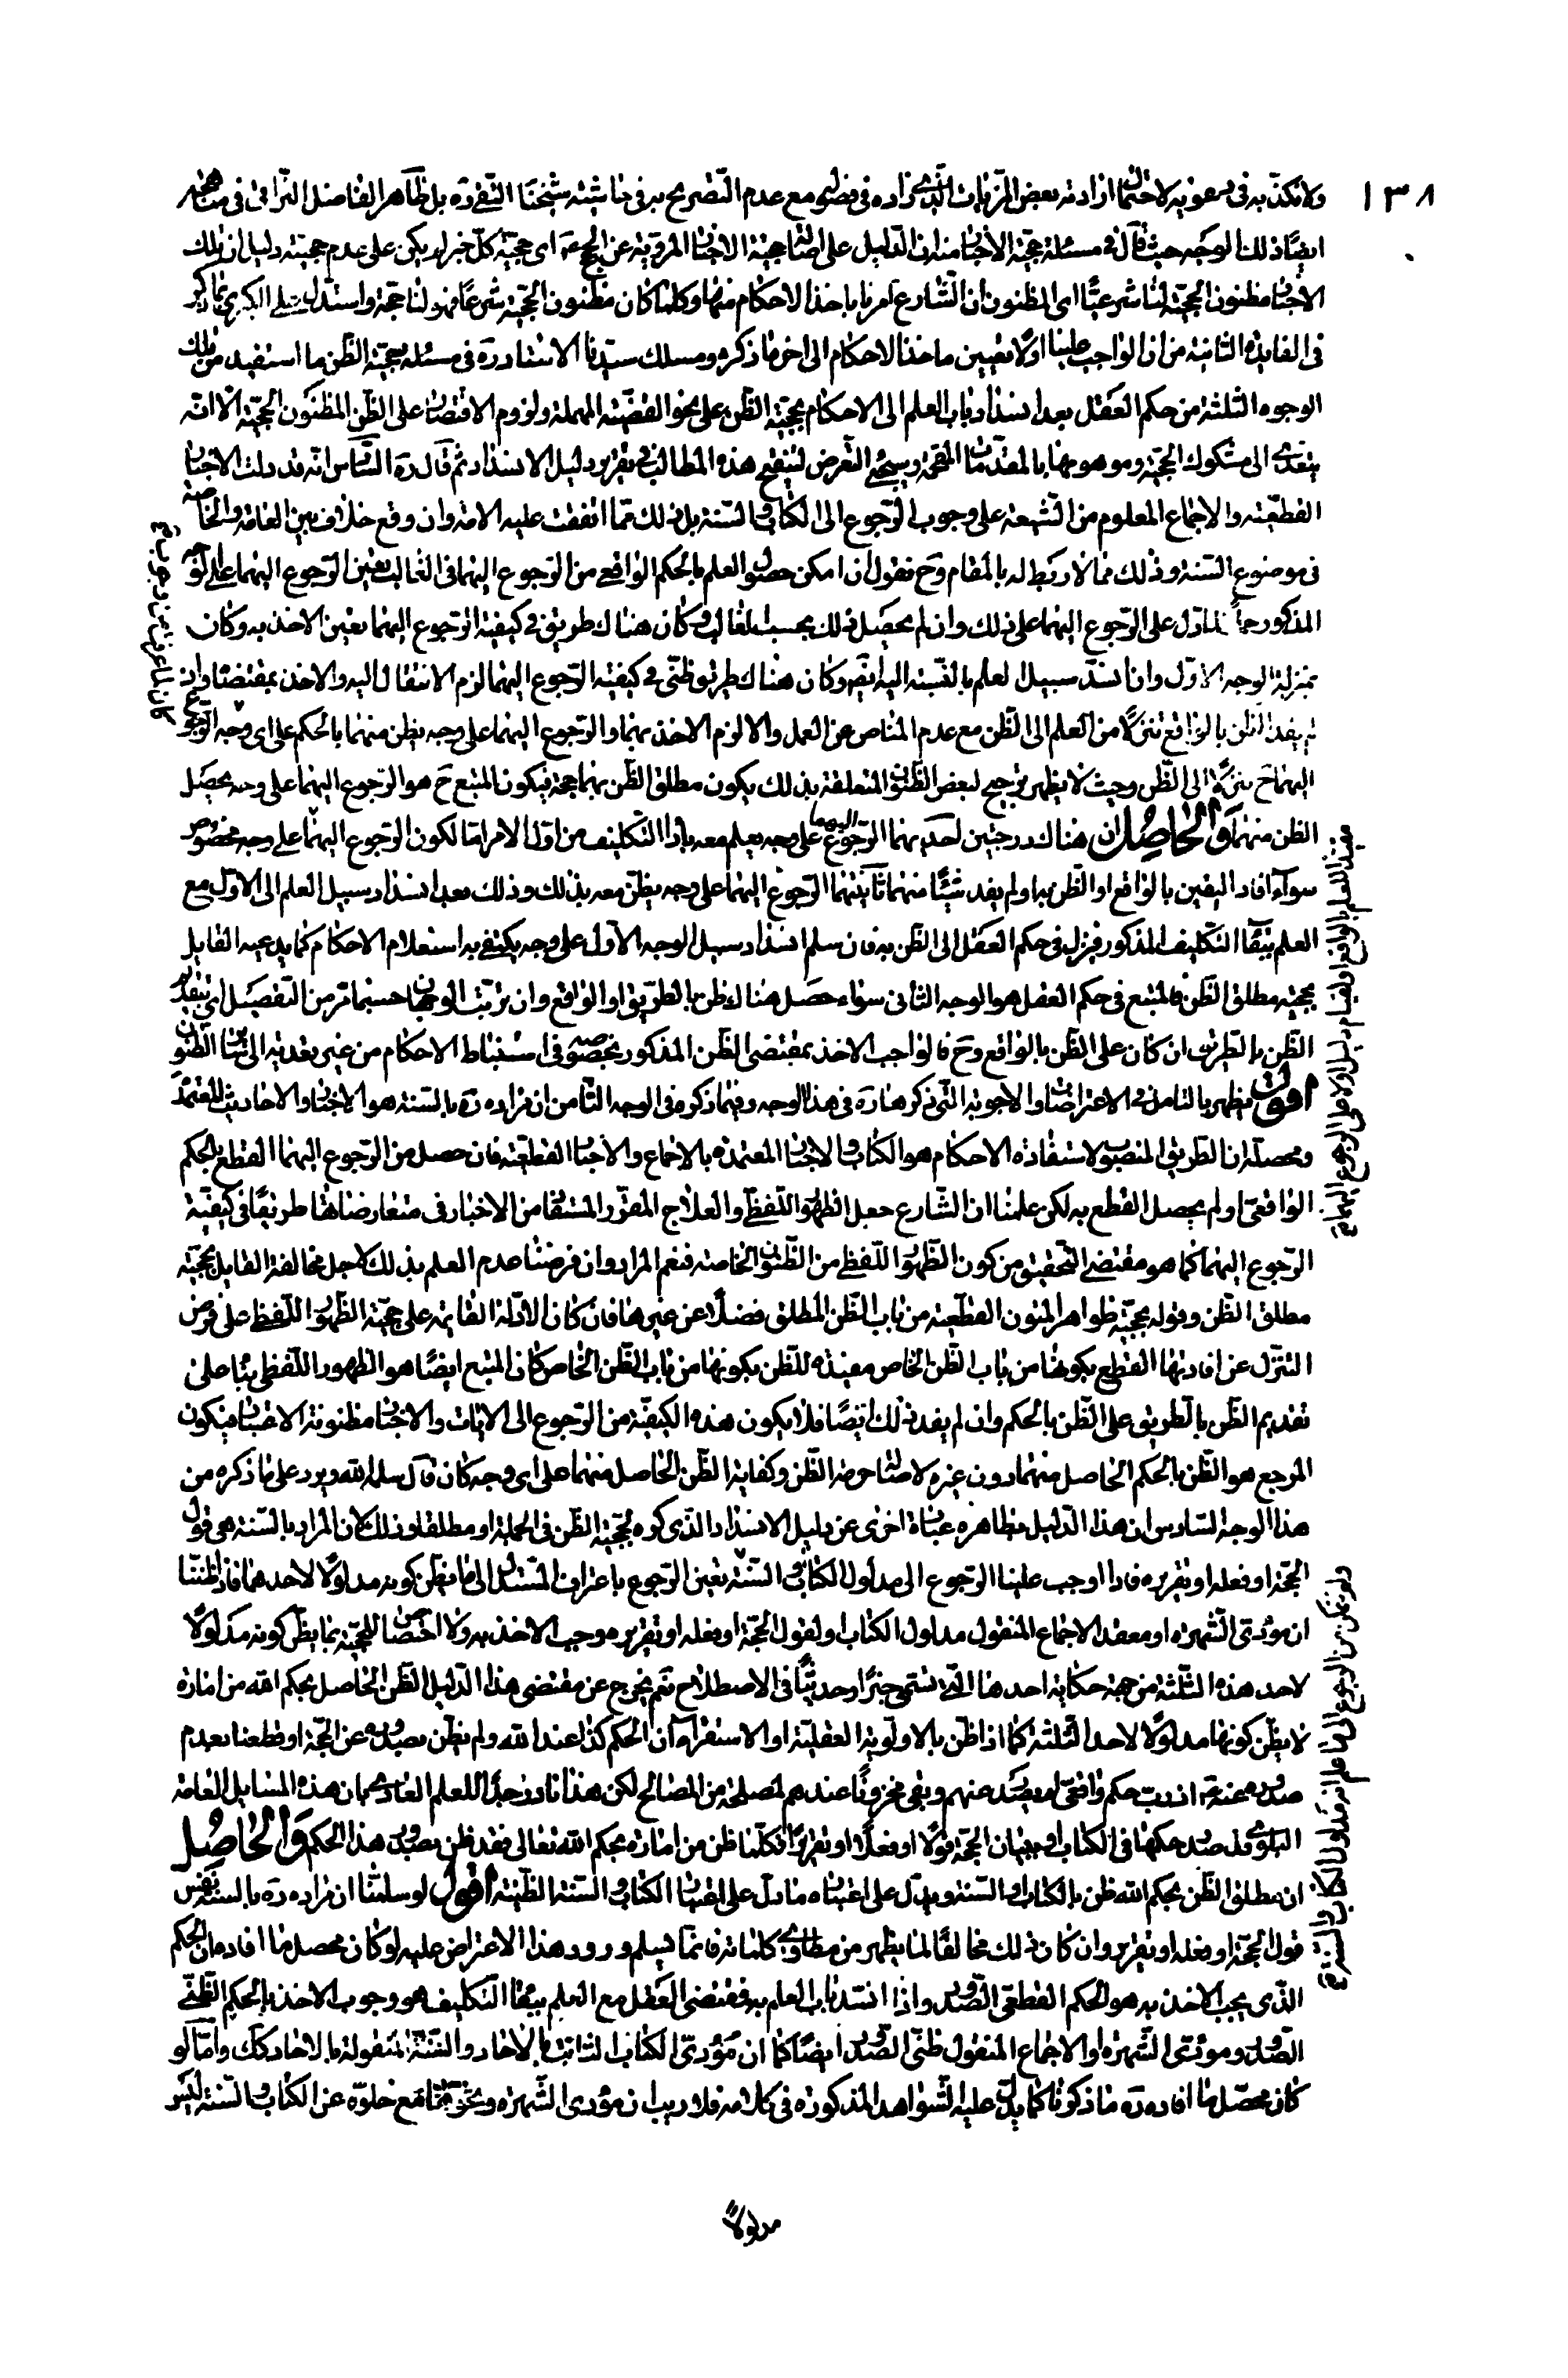 ١٣٨
ولا نكذّبه في دعويه لاحتمال ارادته بعض المزيات الّذي زاده في فصوله مع عدم التّصريح به في حاشيته شيخنا التّقي ره بل ظاهر الفاضل النّراقى في مناهجه
ايضا ذلك الوجه حيث قال في مسئلة حجيّة الاخبار منه ان الدّليل على اصالة حجيّة الاخبار المرويّة عن الحجج ع اى حجيّة كلّ خبر لم يكن على عدم حجيته دليل ان تلك
الاخبار مظنون الحجيّة لنا شرعيّا اى المظنون ان الشّارع امرنا باخذ الاحكام منها وكلما كان مظنون الحجيّة شرعا فهو لنا حجّة واستدل على الكبرى بما ذكر
في الفايدة الثانية من ان الواجب علينا اولا تعيين ماخذ الاحكام الى اخر ما ذكره ومسلك سيّدنا الاستاد ره في مسئلة حجيّة الظّن ما استفيد من تلك
الوجوه الثلثة من حكم العقل بعد انسداد باب العلم الى الاحكام بحجيّة الظّن على نحو القضيّة المهملة ولزوم الاقتصار على الظّن المظنون الحجيّة الّا انّه
يتعدى الى مشكوك الحجيّة وموهومها بالمقدّمات المقحمة ويسجئ التّعرض لتنقيح هذه المطالب في تقرير دليل الانسداد ثم قال ره السّادس انّه قد دلت الاخبار
القطعيّة والاجماع المعلوم من الشّيعة على وجوب الرّجوع الى الكتاب والسّنة بل ذلك ممّا اتفقت عليه الامة وان وقع خلاف بين العامة والخاصة
في موضوع السّنة وذلك ممّا لا ربط له بالمقام وح فنقول ان امكن حصول العلم بالحكم الواقعى من الرّجوع اليهما في الغالب تعين الرّجوع اليهما على الوجه
المذكور حملا لما دلّ على الرّجوع اليهما على ذلك وان لم يحصل ذلك بحسب الغالب وكان هناك طريق في كيفية الرّجوع اليهما تعين الاخذ به وكان
بمنزلة الوجه الاوّل وان انسدّ سبيل العلم بالنّسبة اليه ايضا وكان هناك طريق ظنّي في كيفيّة الرّجوع اليهما لزم الانتقال اليه والاخذ بمقتضاه وان
لم يفد الظن بالواقع تنزلا من العلم الى الظّن مع عدم المناص عن العمل والا لزم الاخذ بهما والرّجوع اليهما على وجه يظن منهما بالحكم على اى وجه
اليهما ح تنزّلا الى الظّن وحيث لا يظهر ترجيح لبعض الظّنون المتعلقة بذلك يكون مطلق الظّن بهما حجّة فيكون المتبع ح هو الرّجوع اليهما على وجه يحصل
الظن منهما والحاصل ان هناك درجتين احديهما الرّجوع اليهما على وجه يعلم معه باداء التّكليف من اوّل الامر امّا لكون الرّجوع اليهما على وجه مخصوص
سواء افاد اليقين بالواقع او الظّن به او لم يفد شيئا منهما ثانيتهما الرّجوع اليهما على وجه يظنّ معه بذلك وذلك بعد انسداد سبيل العلم الى الاوّل مع
العلم ببقاء التّكليف المذكور فينزل في حكم العقل الى الظّن به فان سلم انسداد سبيل الوجه الاوّل على وجه يكتفى به استعلام الاحكام كما يدعيه القايل
بحجيّة مطلق الظّن فالمتبع في حكم العقل هو الوجه الثانى سواء حصل هناك ظن بالطّريق او الواقع وان ترتب الوجهان حسبما مرّ من التّفصيل اى بتقدير
الظّن بالطّريق ان كان على الظّن بالواقع وح فالواجب الاخذ بمقتضى الظّن المذكور بخصوصه في استنباط الاحكام من غير تعديته الى سائر الظّنون
اقول يظهر بالتامل في الاعتراضات والاجوبة الّتي ذكرها ره في هذا الوجه وفيما ذكره في الوجه الثّامن ان مراده ره بالسّنة هو الاخبار والاحاديث المعتمد
ومحصله ان الطّريق المنصوب لاستفادة الاحكام هو الكتاب والاخبار المعتمده بالاجماع والاخبار القطعيّة فان حصل من الرّجوع اليهما القطع بالحكم
الواقعىّ او لم يحصل القطع به لكن علمنا ان الشّارع جعل الظّهور اللّفظى والعلاج المقرّر المستفاد من الاخبار في متعارضاتها طريقا في كيفيّة
الرّجوع اليهما كما هو مقتضى التّحقيق من كون الظّهور اللّفظى من الظّنون الخاصة فنعم المراد وان فرضنا عدم العلم بذلك لاجل مخالفة القايل بحجيّة
مطلق الظّن وقوله بحجيّة ظواهر المتون القطعيّة من باب الظّن المطلق فضلا عن غيرها فان كان الادلّة القايمة على حجيّة الظّهور اللّفظى على فرض
التنزّل عن افادتها القطع بكونها من باب الظّن الخاص مفيدة للظّن بكونها من باب الظّن الخاص كان المتبع ايضا هو الظهور اللّفظى بناء على
تقديم الظّن بالطّريق على الظّن بالحكم وان لم يفد ذلك ايضا فلا يكون هذه الكيفيّة من الرّجوع الى الايات والاخبار مظنونة الاعتبار فيكون
المرجع هو الظّن بالحكم الحاصل منهما دون غيره لاصالة حرمة الظّن وكفاية الظّن الحاصل منهما على اى وجه كان قال سلمه الله ويرد على ما ذكره من
هذا الوجه السّادس ان هذا الدّليل بظاهره عبارة اخرى عن دليل الانسداد الذّى ذكروه لحجيّة الظّن في الجملة او مطلقا وذلك لان المراد بالسّنة هى قول
الحجّة او فعله او تقريره فاذا وجب علينا الرّجوع الى مدلول الكتاب والسّنّة تعين الرّجوع باعتراف المستدلّ الى ما يظن كونه مدلولا لاحدهما فاذا ظننا
ان مؤدّى الشّهرة او معقد الاجماع المنقول مدلول الكتاب او لقول الحجّة او فعله او تقريره وجب الاخذ به ولا اختصاص للحجيّة بما يظن كونه مدلولا
لاحد هذه الثّلثة من جهة حكاية احدها الّتى تسمى خبرا وحديثا في الاصطلاح نعم يخرج عن مقتضى هذا الدّليل الظّن الحاصل بحكم الله من امارة
لا يظنّ كونها مدلولا لاحد الثّلثة كما اذا ظنّ بالاولوية العقليّة او الاستقراء ان الحكم كذا عند الله ولم يظّن بصدوره عن الحجّة او قطعنا بعدم
صدوره عنه ع اذ ربّ حكم واقعىّ لم يصدر عنهم وبقى مخزونا عندهم لمصلحة من المصالح لكن هذا نادر جدّا للعلم العادى بان هذه المسايل العامة
البلوى قد صدر حكمها في الكتاب او ببيان الحجّة قولا او فعلا او تقريرا فكلما ظن من امارة بحكم الله تعالى فقد ظن بصدور هذا الحكم والحاصل
ان مطلق الظّن بحكم الله ظن بالكتاب او السّنة ويدلّ على اعتباره ما دلّ على اعتبار الكتاب والسّنة الظّنيّة اقول لو سلمنا ان مراده ره بالسنة نفس
قول الحجّة او فعله او تقريره وان كان ذلك مخالفا لما يظهر من مطاوى كلماته فانّما نسلم ورود هذا الاعتراض عليه لو كان محصل ما افاده ان الحكم
الذّى يجب الاخذ به هو الحكم القطعى الصّدور واذا انسّد باب العلم به فمقتضى العقل مع العلم ببقاء التّكليف هو وجوب الاخذ بالحكم الظّنّى
الصّدور ومؤدّى الشّهرة او الاجماع المنقول ظنّى الصّدور ايضا كما ان مؤدّى الكتاب الثابت بالاحاد والسّنّة المنقولة بالاحاد كك وامّا لو
كان محصّل ما افاده ره ما ذكرنا كما يدلّ عليه الشّواهد المذكورة في كلامه فلا ريب ان مؤدى الشّهرة ونحوها مع خلوّه عن الكتاب والسّنة ليس
مدلولاً